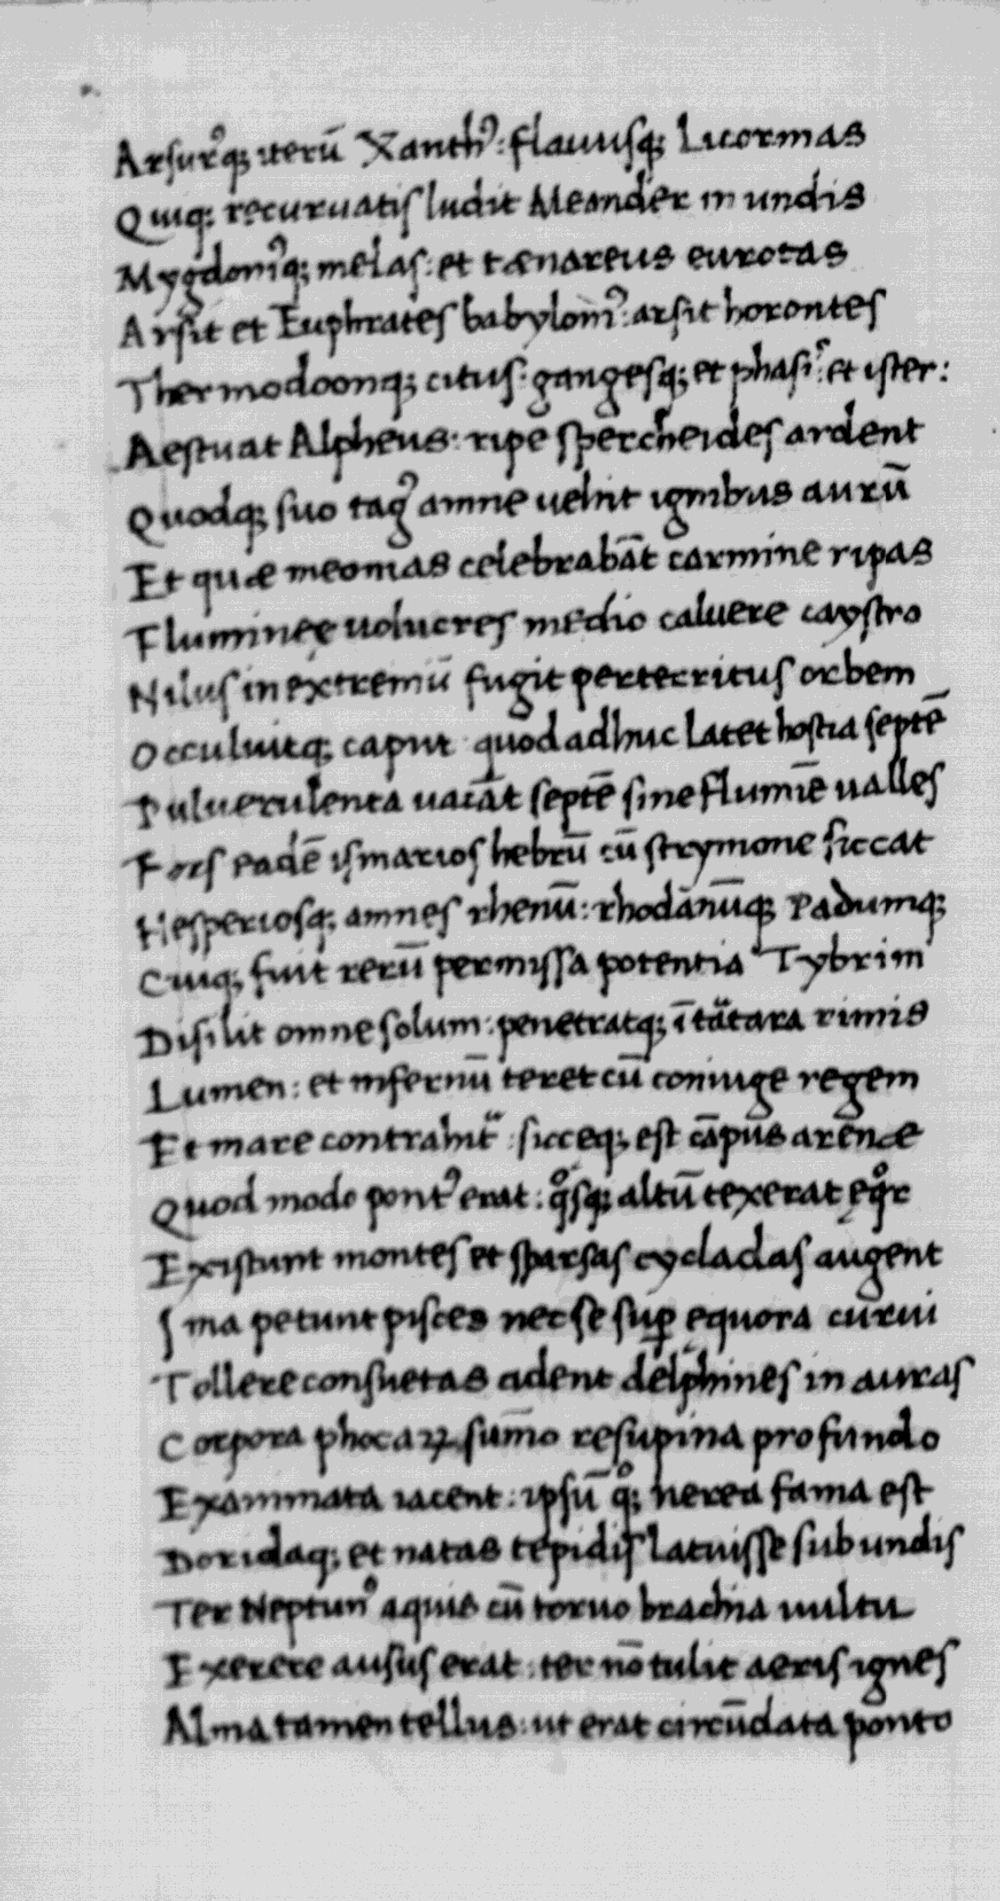 Arsurꝰq; iterū Xanthꝰ: flauusq; Licormas
Quiq; recuruatis ludit Meander in undis
Mygdoniꝰq; melas: et tænareus eurotas
Arsit et Euphrates babyloniꝰ: arsit horontes
Thermodoonq; citus: gangesq; et phasiꝰ: et ister:
Aestuat Alpheus: ripe spercheides ardent
Quodq; suo tagꝰ amne uehit ignibus aurū
Et quæ meonias celebrabāt carmine ripas
Flumineę uolucres medio caluere caystro
Nilus in extremū fugit perterritus orbem
Occuluitq; caput quod adhuc latet hostia septē
Puluerulenta uacāt septē sine flumīe ualles
Fors eadē ismarios hebrū cū strymone siccat
Hesperiosq; amnes rhenū: rhodanūq; Padumq;
Cuiq; fuit rerū permissa potentia Tybrim
Disilit omne solum: penetratq; ī tātara rimis
Lumen: et infernū teret cū coniuge regem
Et mare contrahit᷑: sicceq; est cāpus arenæ
Quod modo pontꝰ erat: qͦsq; altū texerat ęqͦr
Existunt montes et sparsas cycladas augent
Ima petunt pisces nec se suꝑ ęquora curui
Tollere consuetas adent delphines in auras
Corpora phocaꝝ sum̄o resupina profundo
Exanimata iacent: ipsū qͦ; nerea fama est
Doridaq; et natas tepidis latuisse sub undis
Ter Neptunꝰ aquis cū toruo brachia uultu
Exerere ausus erat: ter nō tulit aeris ignes
Alma tamen tellus: ut erat circūdata ponto